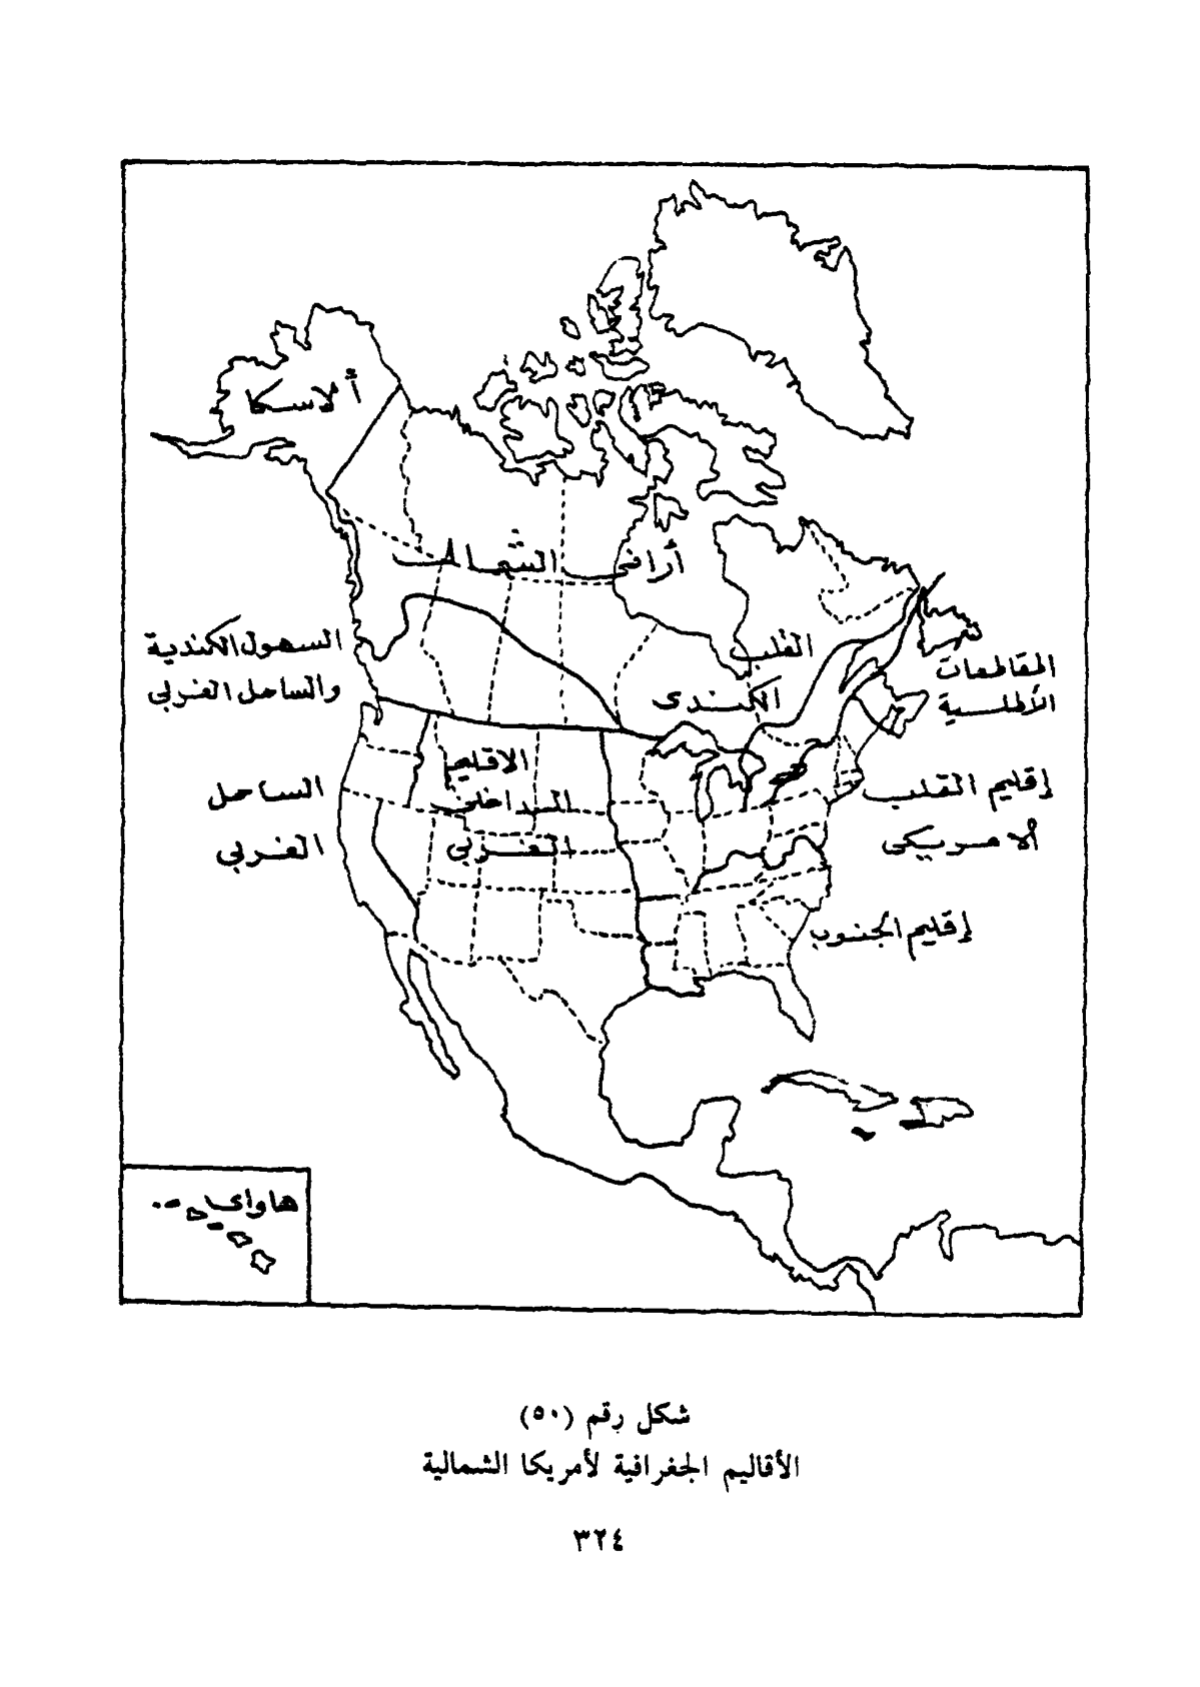 ألاسكا
أراضى الشمال
القلب
الكندى
السهول الكندية
والساحل الغربي
المقاطعات
الأطلسية
الاقليم
الداخلى
الغربي
الساحل
الغربي
إقليم القلب
الامريكى
إقليم الجنوب
هاواى
شكل رقم (٥٠)
الأقاليم الجغرافية لأمريكا الشمالية
٣٢٤